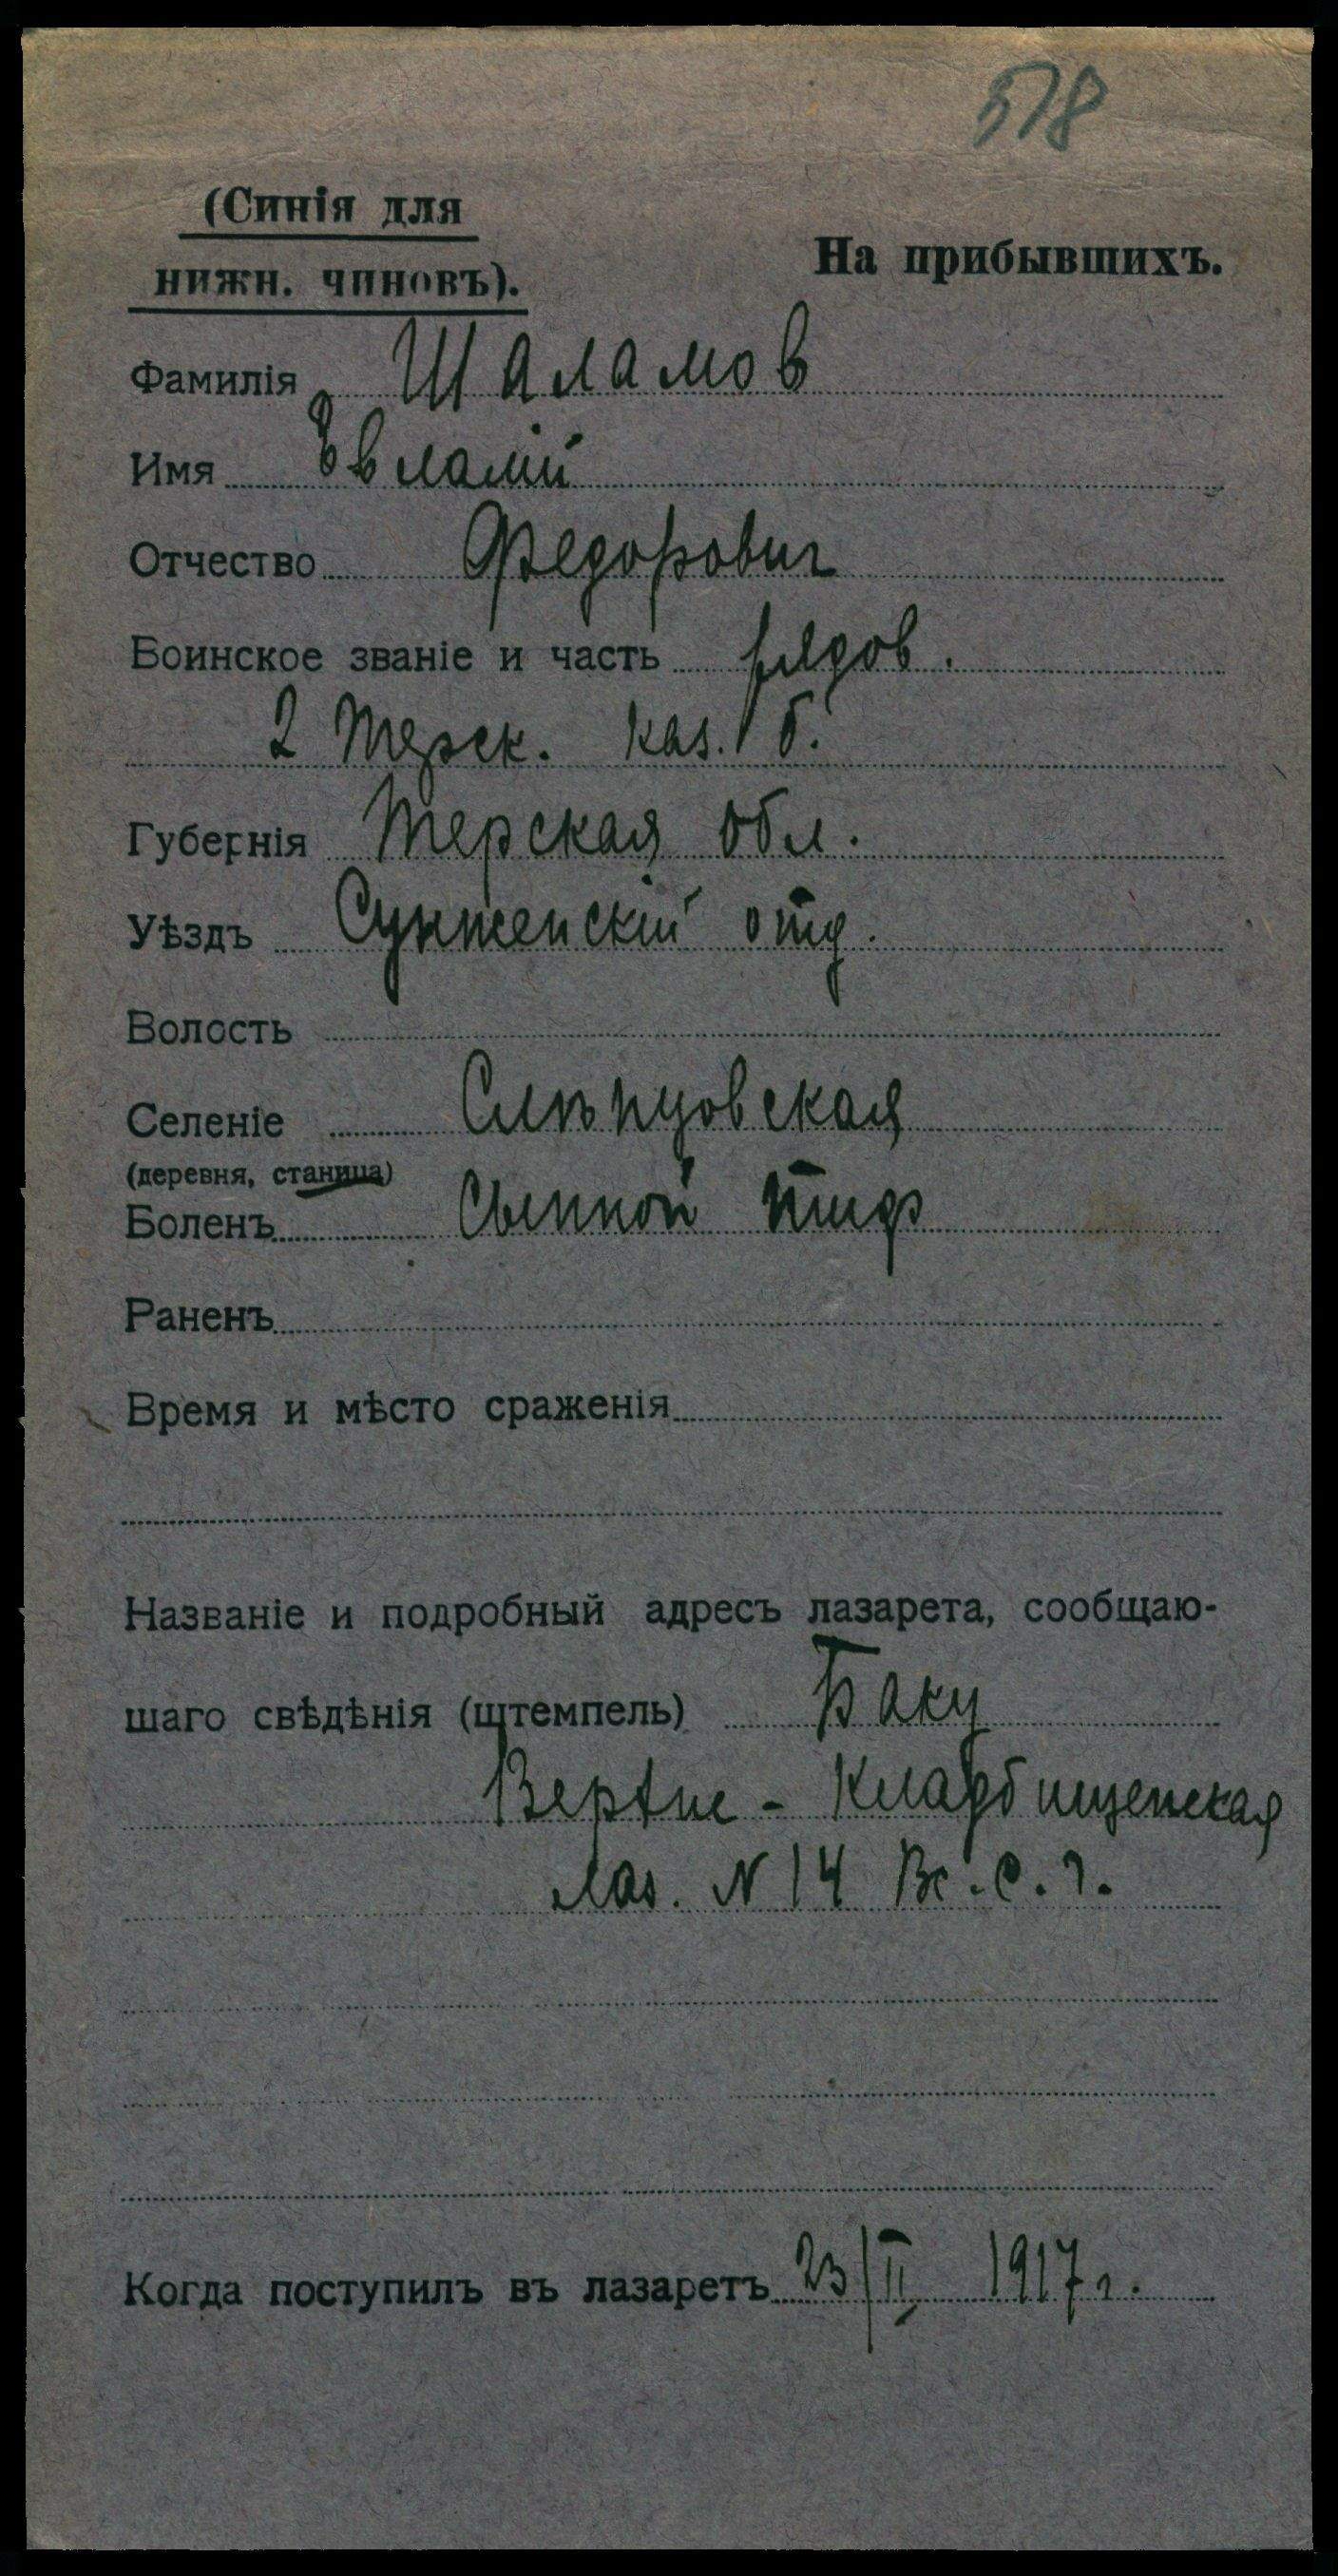 578
(Синія для
нижн. чиновъ).
На прибывшихъ.
Фамилія Шаламов
Имя Евламій
Отчество Федорович
Воинское званіе и часть рядов.
2 Терск. каз. б.
Губернія Терская обл.
Уѣздъ Сунженскій отд.
Волость
Селеніе Слѣпцовская
(деревня, станица)
Боленъ Сыпной тиф
Раненъ
Время и мѣсто сраженія
Названіе и подробный адресъ лазарета, сообщаю-
шаго свѣдѣнія (штемпель) Баку
Верхне - Кладбищенская
лаз. N 14 Вс. С. Г.
Когда поступилъ въ лазаретъ 23/II 1917 г.